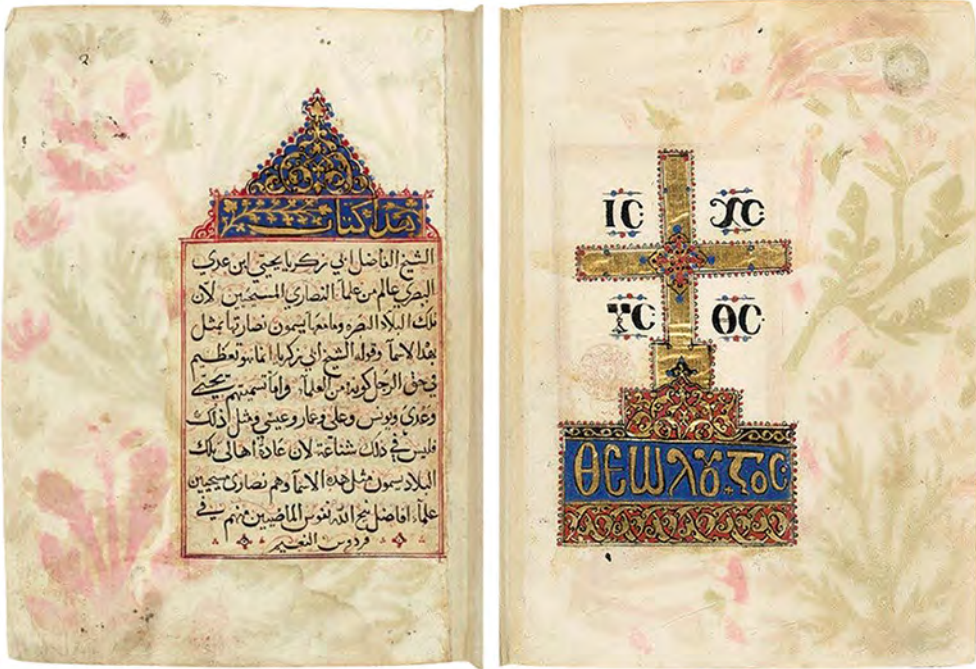 هذا كتاب
الشيخ الفاضل ابي زكريا يحيي ابن عدي
البصري عالم من علماء النصاري المسيحيين لان
تلك البلاد البصره ومامعها يسمون نصارتها بمثل
هذا الاسمآ وقوله الشيخ ابي زكريا انما هو تعظيم
في حق الرجل كونه من العلمآ واما تسميتهم يحيي
وعدي ويونس وعلي وعمار وعيسي ومثل ذلك
فليس في ذلك شناعة لان عادة اهالى تلك
البلاد يسمون مثل هذه الاسمآ وهم نصاري مسيحيين
علمآء افاضل نيح الله نفوس الماضيين منهم في
فردوس النعيم
ⲒⲤ ⲬⲤ
ⲨⲤ ⲐⲤ
ⲐⲈⲰⲖⲞⲨⲄⲞⲤ